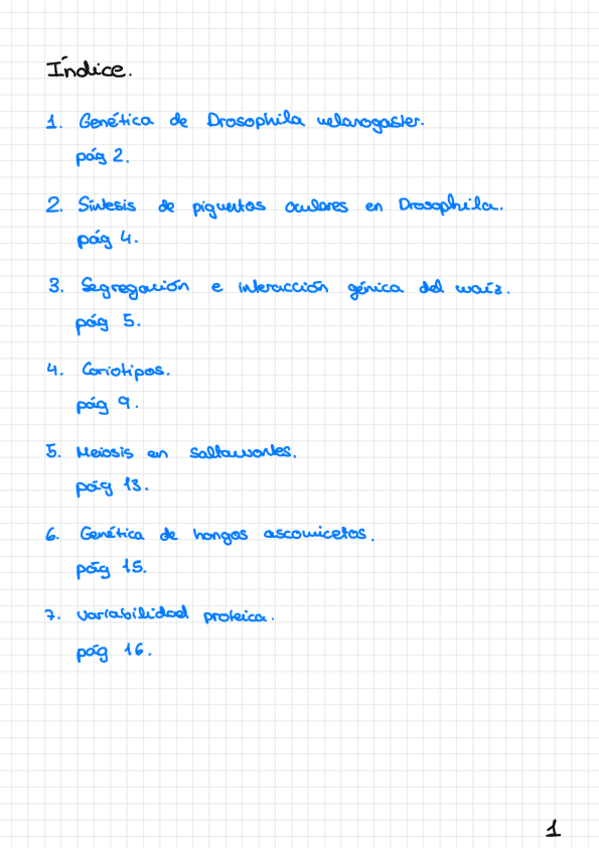 Índice.
1. Genética de Drosophila melanogaster.
pág 2.
2. Síntesis de pigmentos oculares en Drosophila.
pág 4.
3. Segregación e interacción génica del maíz.
pág 5.
4. Cariotipos.
pág 9.
5. Meiosis en saltamontes.
pág 13.
6. Genética de hongos ascomicetos.
pág 15.
7. Variabilidad proteica.
pág 16.
1